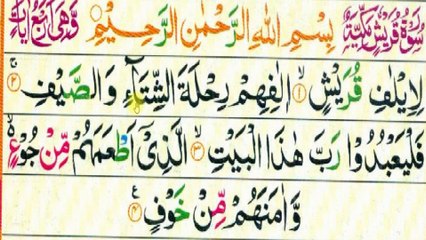 سُوْرَةُ قُرَيْشٍ مَكِّيَّةٌ بِسْمِ اللهِ الرَّحْمٰنِ الرَّحِيْمِ وَهِىَ اَرْبَعُ اٰيَاتٍ
لِاِيْلٰفِ قُرَيْشٍ ۙ﴿۱﴾ اٖلٰفِهِمْ رِحْلَةَ الشِّتَآءِ وَالصَّيْفِ ۚ﴿۲﴾
فَلْيَعْبُدُوْا رَبَّ هٰذَا الْبَيْتِ ۙ﴿۳﴾ الَّذِىْٓ اَطْعَمَهُمْ مِّنْ جُوْعٍ ۙ
وَّاٰمَنَهُمْ مِّنْ خَوْفٍ ﴿۴﴾ ع